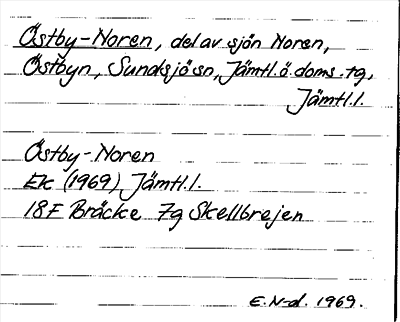 Östby-Noren, del av sjön Noren,
Östbyn, Sundsjö sn, Jämtl.ö.doms.tg,
Jämtl.l.
Östby-Noren
Ek (1969), Jämtl.l.
18F Bräcke 7g Skellbrejen
E.N-d. 1969.